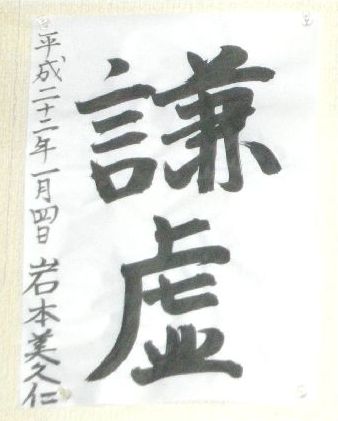 謙虚
平成二十二年一月四日 岩本美久仁